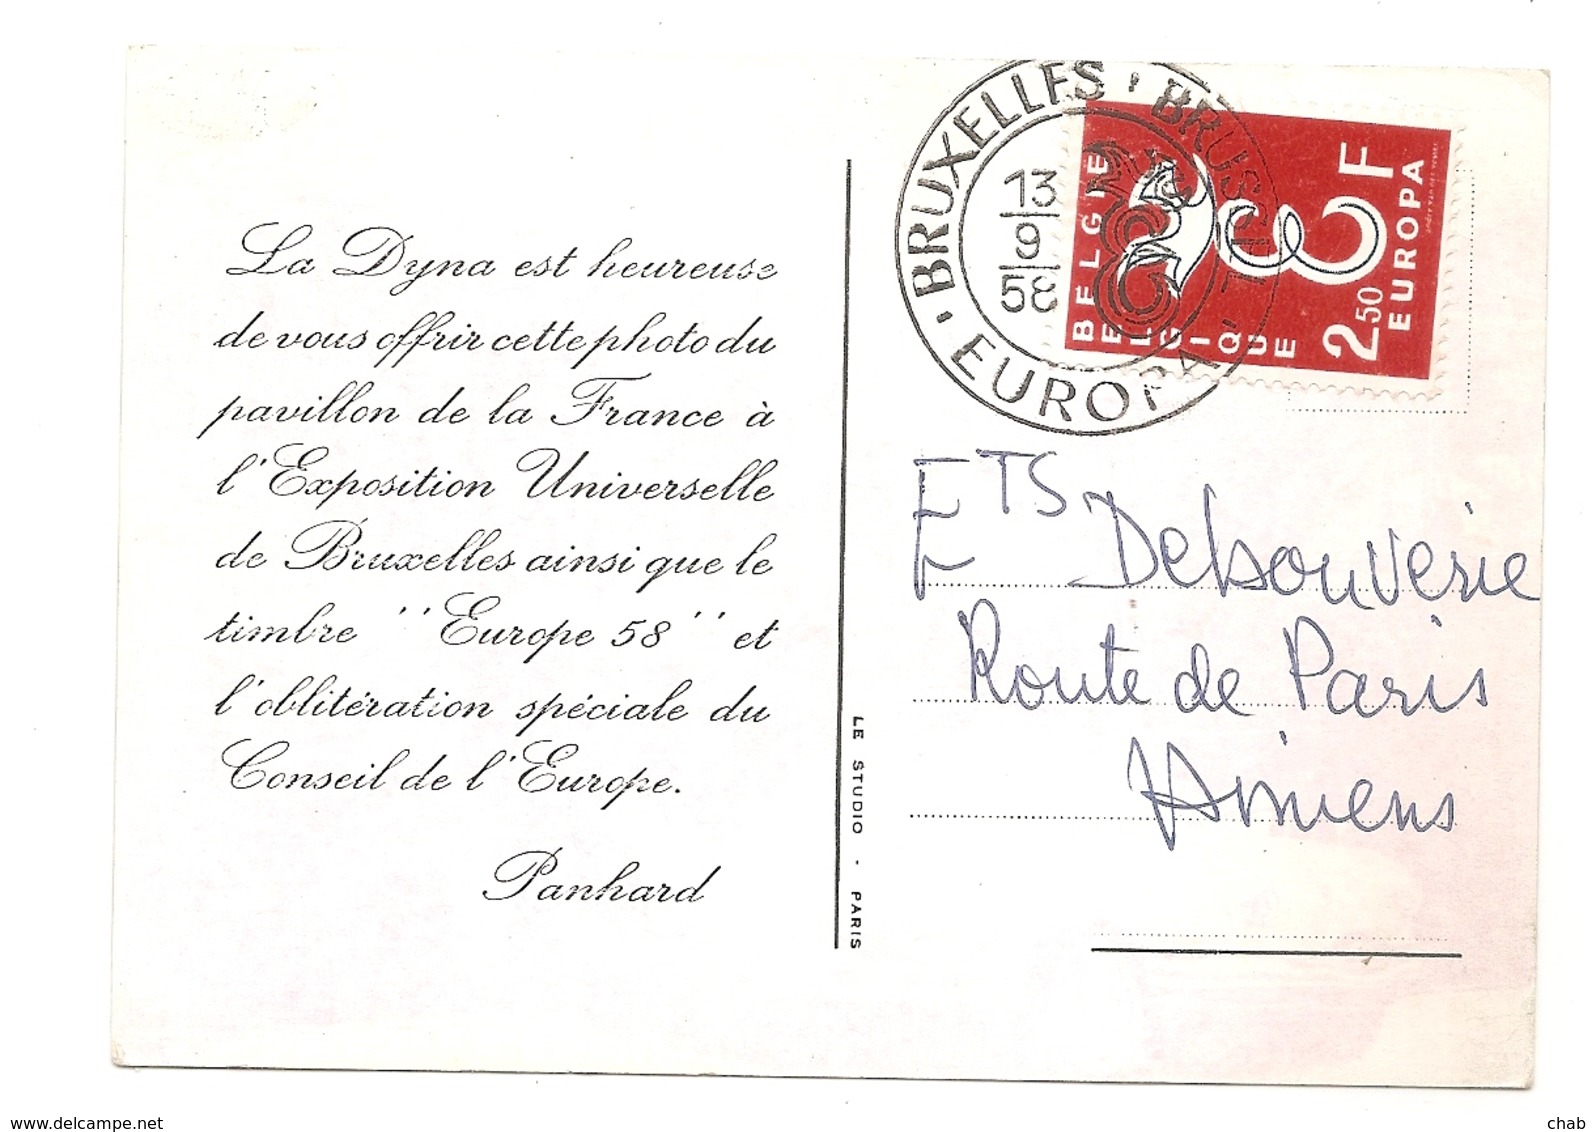 La Dyna est heureuse
de vous offrir cette photo du
pavillon de la France à
l'Exposition Universelle
de Bruxelles ainsi que le
timbre "Europe 58" et
l'oblitération spéciale du
Conseil de l'Europe.
Panhard
LE STUDIO - PARIS
BRUXELLES · BRUSSEL
13
9
58
EUROPA
BELGIE
BELGIQUE
2,50 F
EUROPA
ETS Debouverie
Route de Paris
Amiens
www.delcampe.net
chab